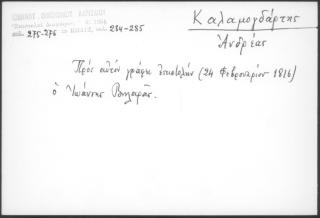 σελ. 275-276 σελ. 284-285
Καλαμογδάρτης
Ἀνδρέας
Πρός αὐτόν γράφει ἐπιστολήν (24 Φεβρουαρίου 1816)
ὁ Ἰωάννης Βηλαρᾶς.